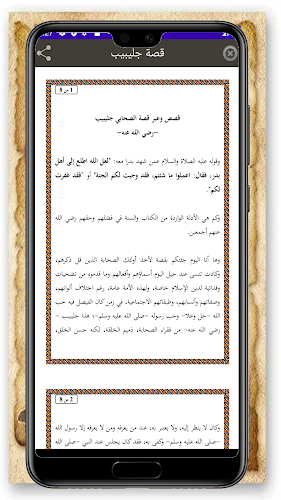 قصة جليبيب
1 من 8
قصص وعبر قصة الصحابي جليبيب
–رضي الله عنه–
وقوله عليه الصلاة والسلام عمن شهد بدرا معه: "لعل الله اطلع إلى أهل
بدر، فقال: اعملوا ما شئتم، فقد وجبت لكم الجنة" أو "فقد غفرت
لكم".
وكم هي الأدلة الواردة من الكتاب والسنة في فضلهم وحقهم رضي الله
عنهم أجمعين.
وها أنا اليوم جئتكم بقصة لأحد أولئك الصحابة الذين قل ذكرهم،
وكادت تنسى عند جيل اليوم أسماؤهم وأفعالهم وما قدموه من تضحيات
وفدائية لدين الإسلام خاصة، ولهذه الأمة عامة، رغم اختلاف ألوانهم،
وصفاتهم وأنسابهم، وطبقاتهم الاجتماعية، في زمن كان الفيصل فيه حب
الله –جل وعلا– وحب رسوله –صلى الله عليه وسلم–؛ هذا جليبيب –
رضي الله عنه– من فقراء الصحابة، ذميم الخلقة، لكنه حسن الخلق،
2 من 8
وكان لا ينظر إليه، ولا يعتبر به، عند من يعرفه ومن لا يعرفه إلا رسول الله
–صلى الله عليه وسلم– وكفى به، فقد كان يجلس عند النبي –صلى الله